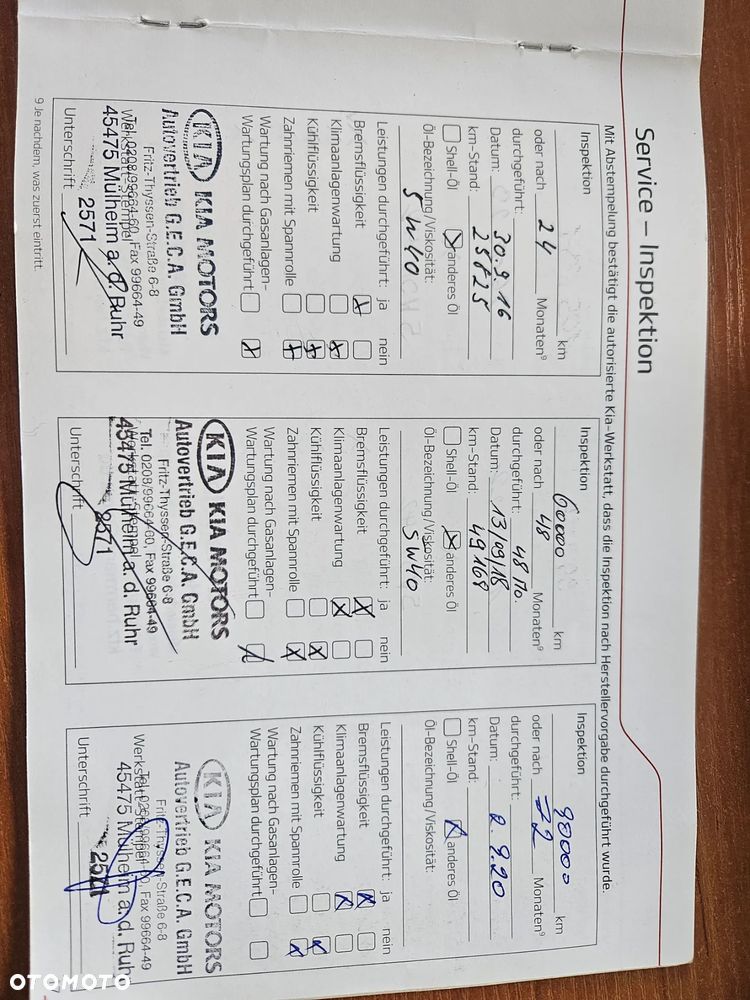 Service – Inspektion
Mit Abstempelung bestätigt die autorisierte Kia-Werkstatt, dass die Inspektion nach Herstellervorgabe durchgeführt wurde.
Inspektion
km
oder nach 24 Monaten⁹
durchgeführt:
Datum: 30.9.16
km-Stand: 25825
Shell-Öl x anderes Öl
Öl-Bezeichnung/Viskosität:
5W40
Leistungen durchgeführt: ja nein
Bremsflüssigkeit x
Klimaanlagenwartung x
Kühlflüssigkeit x
Zahnriemen mit Spannrolle x
Wartung nach Gasanlagen-
Wartungsplan durchgeführt x
KIA KIA MOTORS
Autovertrieb G.E.C.A. GmbH
Fritz-Thyssen-Straße 6-8
Tel. 0208/99664-60, Fax 99664-49
Werkstatt-Stempel
45475 Mülheim a. d. Ruhr
2571
Unterschrift
Inspektion
60000 km
oder nach 48 Monaten⁹
durchgeführt: 48 Mo.
Datum: 13/09/18
km-Stand: 49168
Shell-Öl x anderes Öl
Öl-Bezeichnung/Viskosität:
5W40
Leistungen durchgeführt: ja nein
Bremsflüssigkeit x
Klimaanlagenwartung x
Kühlflüssigkeit x
Zahnriemen mit Spannrolle x
Wartung nach Gasanlagen-
Wartungsplan durchgeführt x
KIA KIA MOTORS
Autovertrieb G.E.C.A. GmbH
Fritz-Thyssen-Straße 6-8
Tel. 0208/99664-60, Fax 99664-49
45475 Mülheim a. d. Ruhr
2571
Unterschrift
Inspektion
90000 km
oder nach 72 Monaten⁹
durchgeführt:
Datum: 2.9.20
km-Stand:
Shell-Öl x anderes Öl
Öl-Bezeichnung/Viskosität:
Leistungen durchgeführt: ja nein
Bremsflüssigkeit x
Klimaanlagenwartung x
Kühlflüssigkeit x
Zahnriemen mit Spannrolle x
Wartung nach Gasanlagen-
Wartungsplan durchgeführt
KIA KIA MOTORS
Autovertrieb G.E.C.A. GmbH
Fritz-Thyssen-Straße 6-8
Tel. 0208/99664-60, Fax 99664-49
Werkstatt-Stempel
45475 Mülheim a. d. Ruhr
2571
Unterschrift
9 Je nachdem, was zuerst eintritt.
7
OTOMOTO